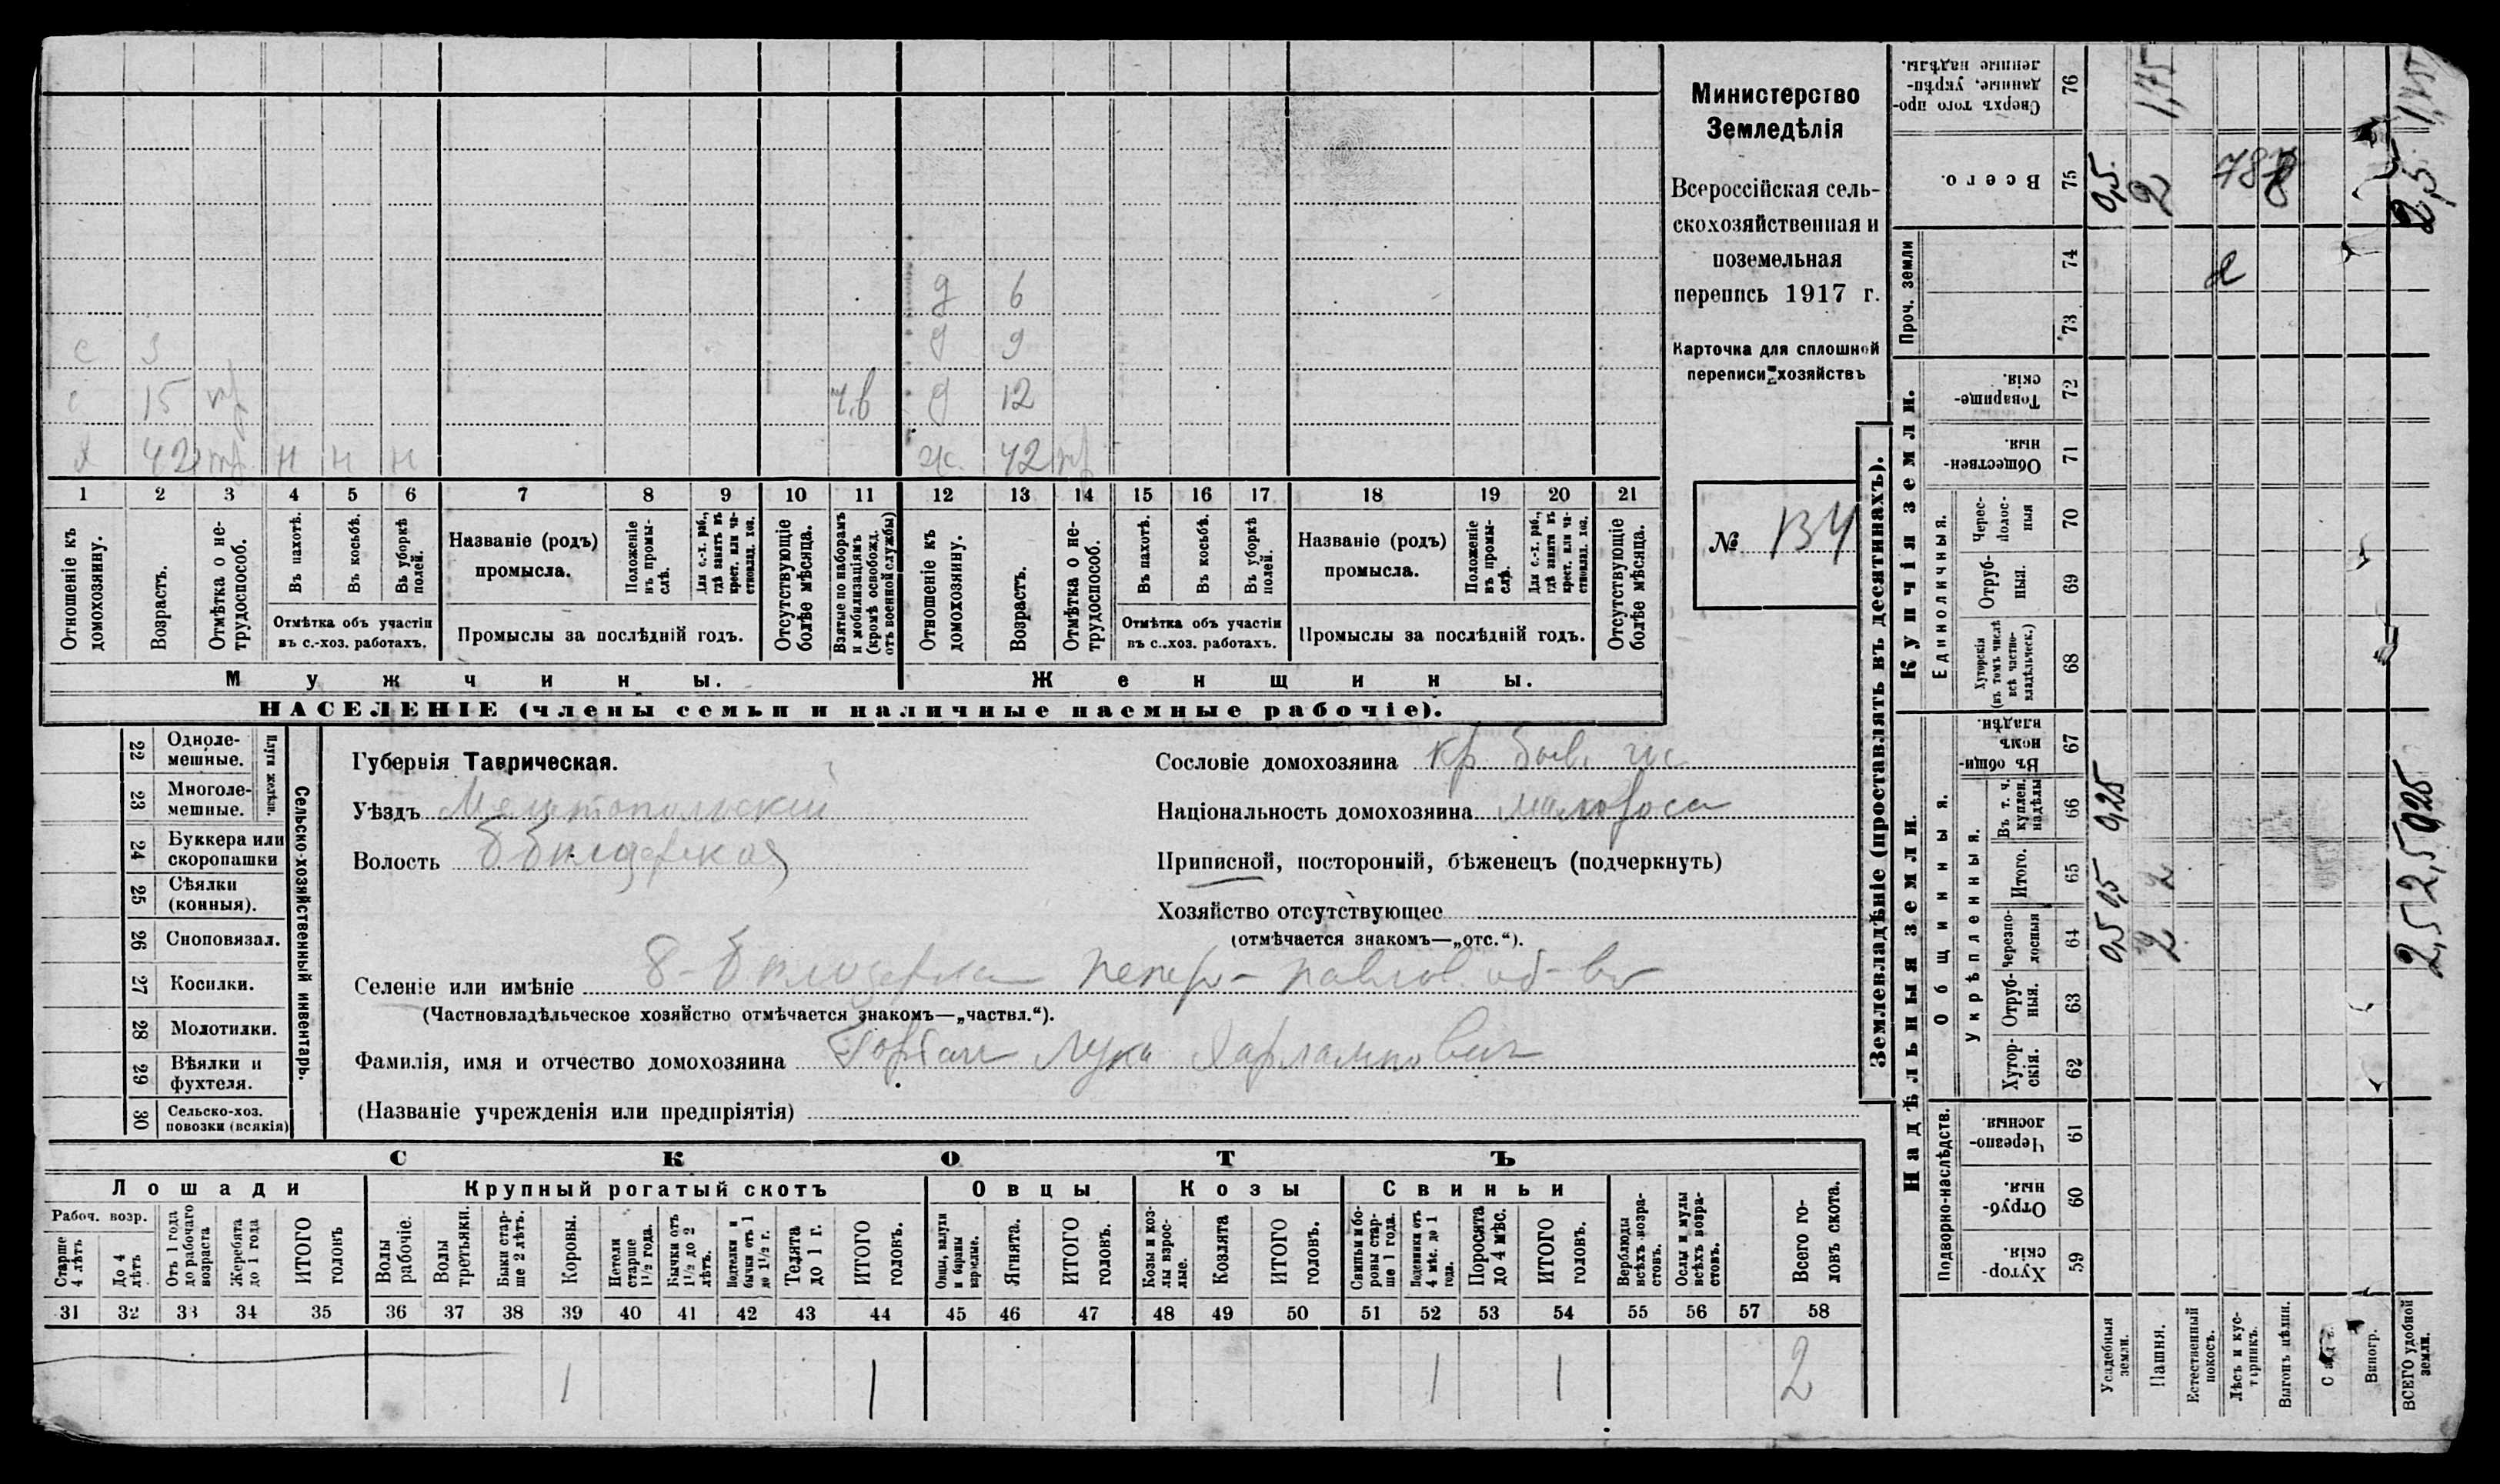 с 3
с 15 тр ч.в
х 42 тр н н н
д 6
д 9
д 12
ж 42 тр
1 2 3 4 5 6 7 8 9 10 11 12 13 14 15 16 17 18 19 20 21
Отношеніе къ домохозяину.
Возрастъ.
Отмѣтка о не-
трудоспособ.
Въ пахотѣ.
Въ косьбѣ.
Въ уборкѣ полей.
Отмѣтка объ участіи
въ с.-хоз. работахъ.
Названіе (родъ)
промысла.
Положеніе въ промы-
слѣ.
Для с.-х. раб.,
гдѣ занятъ въ
крест. или ча-
стновлад. хоз.
Промыслы за послѣдній годъ.
Отсутствующіе
болѣе мѣсяца.
Взятые по наборамъ
и мобилизаціямъ
(кромѣ освобожд.
отъ военной службы)
Отношеніе къ домохозяину.
Возрастъ.
Отмѣтка о не-
трудоспособ.
Въ пахотѣ.
Въ косьбѣ.
Въ уборкѣ полей.
Отмѣтка объ участіи
въ с.-хоз. работахъ.
Названіе (родъ)
промысла.
Положеніе въ промы-
слѣ.
Для с.-х. раб.,
гдѣ занята въ
крест. или ча-
стновлад. хоз.
Промыслы за послѣдній годъ.
Отсутствующіе
болѣе мѣсяца.
Мужчины.
Женщины.
НАСЕЛЕНІЕ (члены семьи и наличные наемные рабочіе).
Министерство
Земледѣлія
Всероссійская сель-
скохозяйственная и
поземельная
перепись 1917 г.
Карточка для сплошной
переписи хозяйствъ
№ 134
22 Одноле-
мешные.
23 Многоле-
мешные.
Плуги желѣзн.
24 Буккера или
скоропашки
25 Сѣялки
(конныя).
26 Сноповязал.
27 Косилки.
28 Молотилки.
29 Вѣялки и
фухтеля.
30 Сельско-хоз.
повозки (всякія)
Сельско-хозяйственный инвентарь.
Губернія Таврическая.
Уѣздъ Мелитопольскій
Волость Б Билозерская
Сословіе домохозяина кр. быв. гос
Національность домохозяина малоросс
Приписной, посторонній, бѣженецъ (подчеркнуть)
Хозяйство отсутствующее
(отмѣчается знакомъ—„отс.“).
Селеніе или имѣніе Б-Билозерка Петро-Павлов. об-во
(Частновладѣльческое хозяйство отмѣчается знакомъ—„частвл.“).
Фамилія, имя и отчество домохозяина Горбан Лука Харлампович
(Названіе учрежденія или предпріятія)
СКОТЪ
Лошади
Крупный рогатый скотъ
Овцы
Козы
Свиньи
Рабоч. возр.
Старше
4 лѣтъ
До 4
лѣтъ
Отъ 1 года
до рабочаго
возраста
Жеребята
до 1 года
ИТОГО
головъ
Волы
рабочіе.
Волы
третьяки.
Быки стар-
ше 2 лѣтъ.
Коровы.
Нетели
старше
1½ года.
Бычки отъ
1½ до 2
лѣтъ.
Подтелки и
бычки отъ 1
до 1½ г.
Телята
до 1 г.
ИТОГО
головъ.
Овцы, валухи
и бараны
взрослые.
Ягнята.
ИТОГО
головъ.
Козы и коз-
лы взрос-
лые.
Козлята
ИТОГО
головъ.
Свиньи и бо-
ровы стар-
ше 1 года.
Подсвинки отъ
4 мѣс. до 1
года.
Поросята
до 4 мѣс.
ИТОГО
головъ.
Верблюды
всѣхъ возра-
стовъ.
Ослы и мулы
всѣхъ возра-
стовъ.
Всего го-
ловъ скота.
31 32 33 34 35 36 37 38 39 40 41 42 43 44 45 46 47 48 49 50 51 52 53 54 55 56 57 58
1 1 1 1 2
Землевладѣніе (проставлять въ десятинахъ).
Надѣльныя земли.
Купчія земли.
Проч. земли
Подворно-наслѣдств.
Общинныя.
Укрѣпленныя.
Единоличныя.
Сверхъ того про-
данные, укрѣп-
ленные надѣлы.
76
Всего.
75
74
73
Товарище-
скія.
72
Обществен-
ныя.
71
Черес-
полос-
ныя
70
Отруб-
ныя.
69
Хуторскія
(въ томъ числѣ
всѣ частно-
владѣльческ.)
68
Въ общи-
номъ
владѣн.
67
Въ т. ч.
куплен.
надѣлы
66
Итого.
65
Черезпо-
лосныя
64
Отруб-
ныя.
63
Хутор-
скія.
62
Черезпо-
лосныя.
61
Отруб-
ныя.
60
Хутор-
скія.
59
Усадебныя
земли.
0,5 0,5 0,25 0,5.
Пашня.
2 2 2 1,75
Естественный
покосъ.
Лѣсъ и кус-
тарникъ.
Выгонъ цѣлин.
Виногр.
ВСЕГО удобной
земли.
2,5 2,5 0,25 2,5 1,75